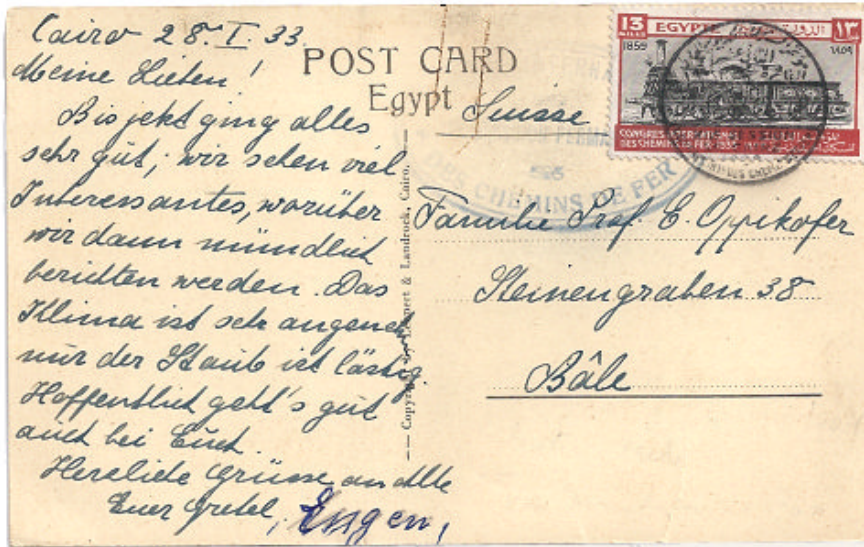 Cairo 28. I. 33.
Meine Lieben!
Bis jetzt ging alles
sehr gut; wir sehen viel
Interessantes, worüber
wir dann mündlich
berichten werden. Das
Klima ist sehr angenehm
nur der Staub ist lästig.
Hoffentlich geht's gut
auch bei Euch.
Herzliche Grüsse an Alle
Euer Gretel, Eugen,
POST CARD
Egypt
Copyright by Lehnert & Landrock, Cairo.
Suisse
Familie Prof. E. Oppikofer
Steinengraben 38
Bâle
13
MILLS
EGYPTE
١٣
1859
١٨٥٩
CONGRES INTERNATIONAL
DES CHEMINS DE FER-1933
DES CHEMINS DE FER